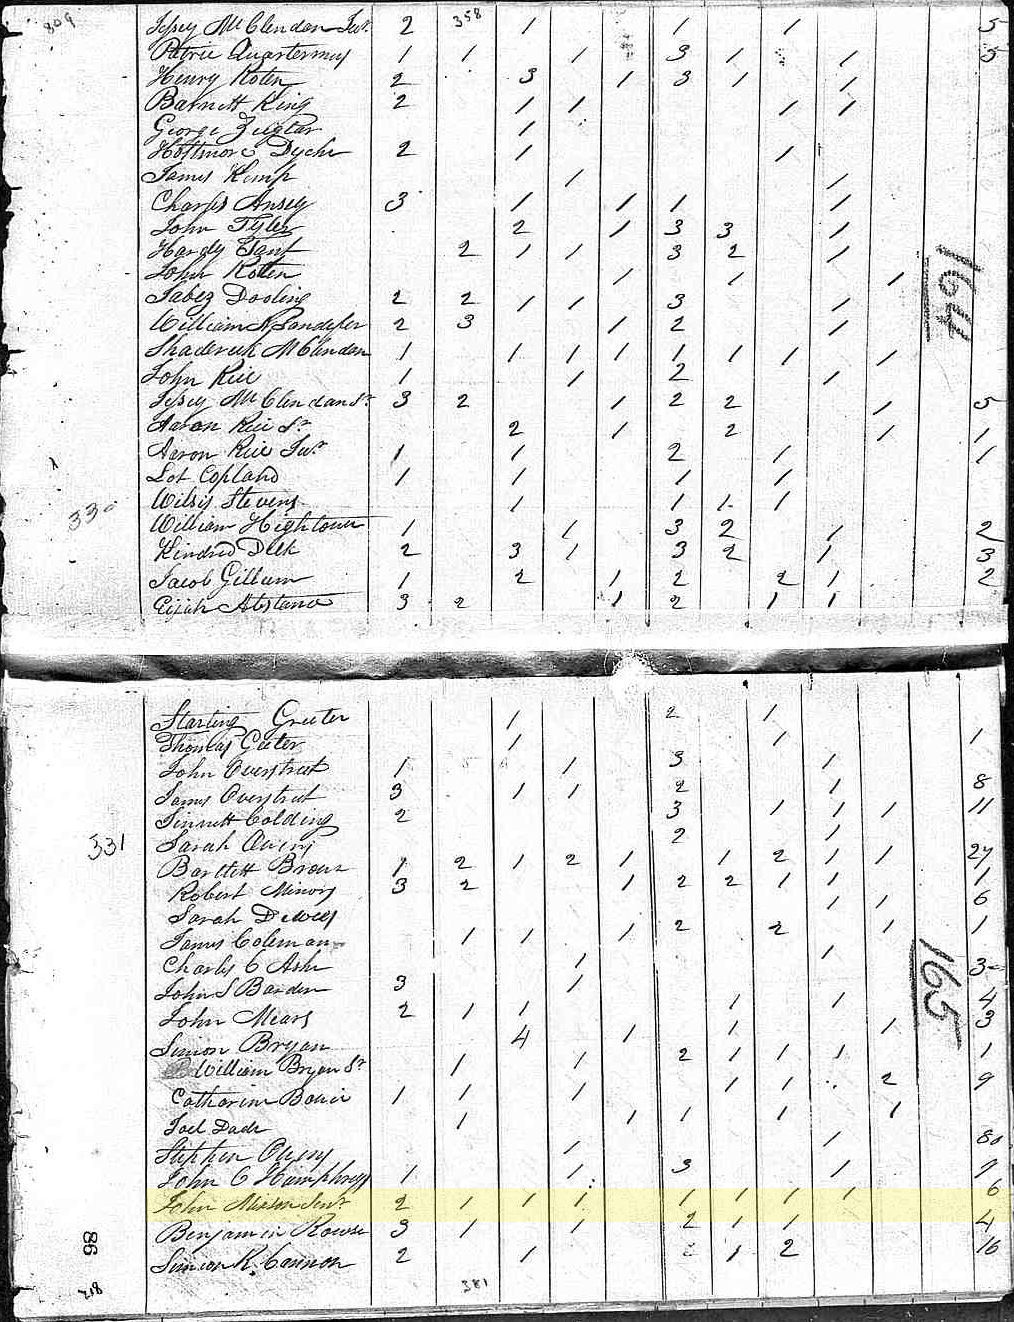 358
Jesey McClendon Jur. 2 1 1 1 5
Patric Quartermus 1 1 1 3 1 1 5
Henry Koten 2 3 1 3 1 1
Barnett King 2 1 1 1 1
George Zeigler 1
Dyche 2 1 1
James Kemp 1 1
Charles Ansey 3 1 1 1 1
John Tyler 2 1 3 3 1
Hardy 2 1 1 3 2 1
John Koten 1 1 1
Jabez Dooling 2 2 1 1 3 1
William 2 3 1 2 1
Shaderick McClendon 1 1 1 1 1 1 1 1
John Rice 1 1 2 1
Jesey McClendon Sr. 3 2 1 2 2 1 5
Aaron Rice Sr 2 1 2 1 1
Aaron Rice Jur. 1 1 2 1 1
Lot Copland 1 1 1 1
Stevens 1 1 1 1
William Hightower 1 1 3 2 1 2
Kindred Delk 2 3 1 3 2 1 3
Jacob Gillum 1 2 1 2 2 1 2
Elijah 3 2 1 2 1 1
164
330
Starling Greeter 1 2 1
Thomas Geeter 1 1 1
John Overstreet 1 1 3 1
James Overstreet 3 1 1 2 1 8
Colding 2 3 1 1 1 11
Sarah 2 1
331
Bartlett Brown 1 2 1 2 1 1 2 1 1 27
Robert Minors 3 2 1 2 2 1 1 1
Sarah Dewees 1 1 6
James Coleman 1 1 1 2 2 1 1
Charles C Ashe 1 1 3
John S Barden 3 1
John Mears 2 1 1 1 1 4
Simon Bryan 4 1 1 1 3
William Bryan Sr. 1 1 2 1 1 1 1
Catharine 1 1 1 1 1 2 9
Joel Dade 1 1 1 1 1
Stephen 1 1 80
John C Humphreys 1 1 3 1 7
John Mixson Senr 2 1 1 1 1 1 1 1 6
Benjamin Rowse 3 1 1 2 1 1 4
Simion R. Cannon 2 1 1 2 16
165
86
218
381